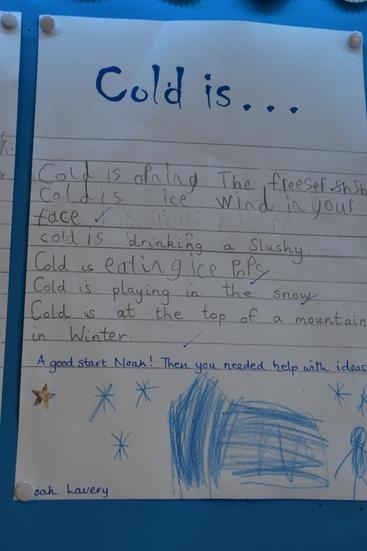 Cold is...
Cold is oPning The freeser
Cold is ice wind in your
face
cold is drinking a Slushy.
Cold is eating ice PoPs
Cold is playing in the snow
Cold is at the top of a mountain
in Winter.
A good start Noah! Then you needed help with ideas
oah Lavery